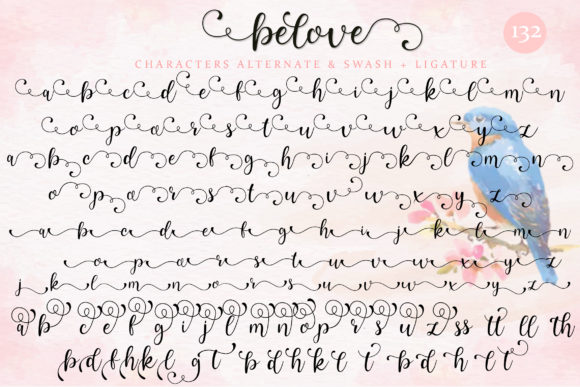 belove
132
CHARACTERS ALTERNATE & SWASH + LIGATURE
a b c d e f g h i j k l m n
o p q r s t u v w x y z
a b c d e f g h i j k l m n
o p q r s t u v w x y z
a b c d e f g h i j k l m n
o p q r s t u v w x y z
j k l m n o p q r s t u v w x y z
a b c e f g i j l m n o p r s u z ss tt ll th
b d f h k l g t b d h k l t b d h l t